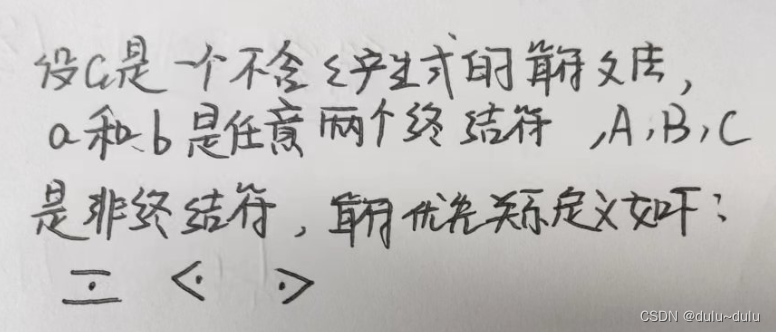 设G是一个不含ε产生式的算符文法,
a和b是任意两个终结符,A,B,C
是非终结符,算符优先关系定义如下:
≐ ⋖ ⋗
CSDN @dulu~dulu